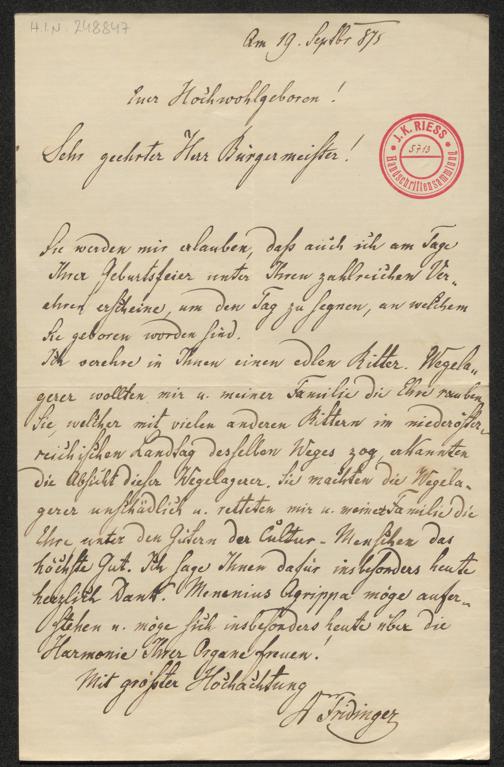 H.I.N. 248847
Am 19. Septbr 875
Euer Hochwohlgeboren!
Sehr geehrter Herr Bürgermeister!
J. K. RIESS
5713
Handschriftensammlung
Sie werden mir erlauben, daß auch ich am Tage
Ihrer Geburtsfeier unter Ihren zahlreichen Ver-
ehrern erscheine, um den Tag zu segnen, an welchem
Sie geboren worden sind.
Ich verehre in Ihnen einen edlen Ritter. Wegela-
gerer wollten mir u. meiner Familie die Ehre rauben
Sie, welcher mit vielen anderen Rittern im niederöster-
reichischen Landtag desselben Weges zog, erkannten
die Absicht dieser Wegelagerer. Sie machten die Wegela-
gerer unschädlich u. retteten mir u. meiner Familie die
Ehre unter den Gütern der Cultur-Menschen das
höchste Gut. Ich sage Ihnen dafür insbesonders heute
herzlich Dank. Menenius Agrippa möge aufer-
stehen u. möge sich insbesonders heute über die
Harmonie Ihrer Organe freuen!
Mit größter Hochachtung